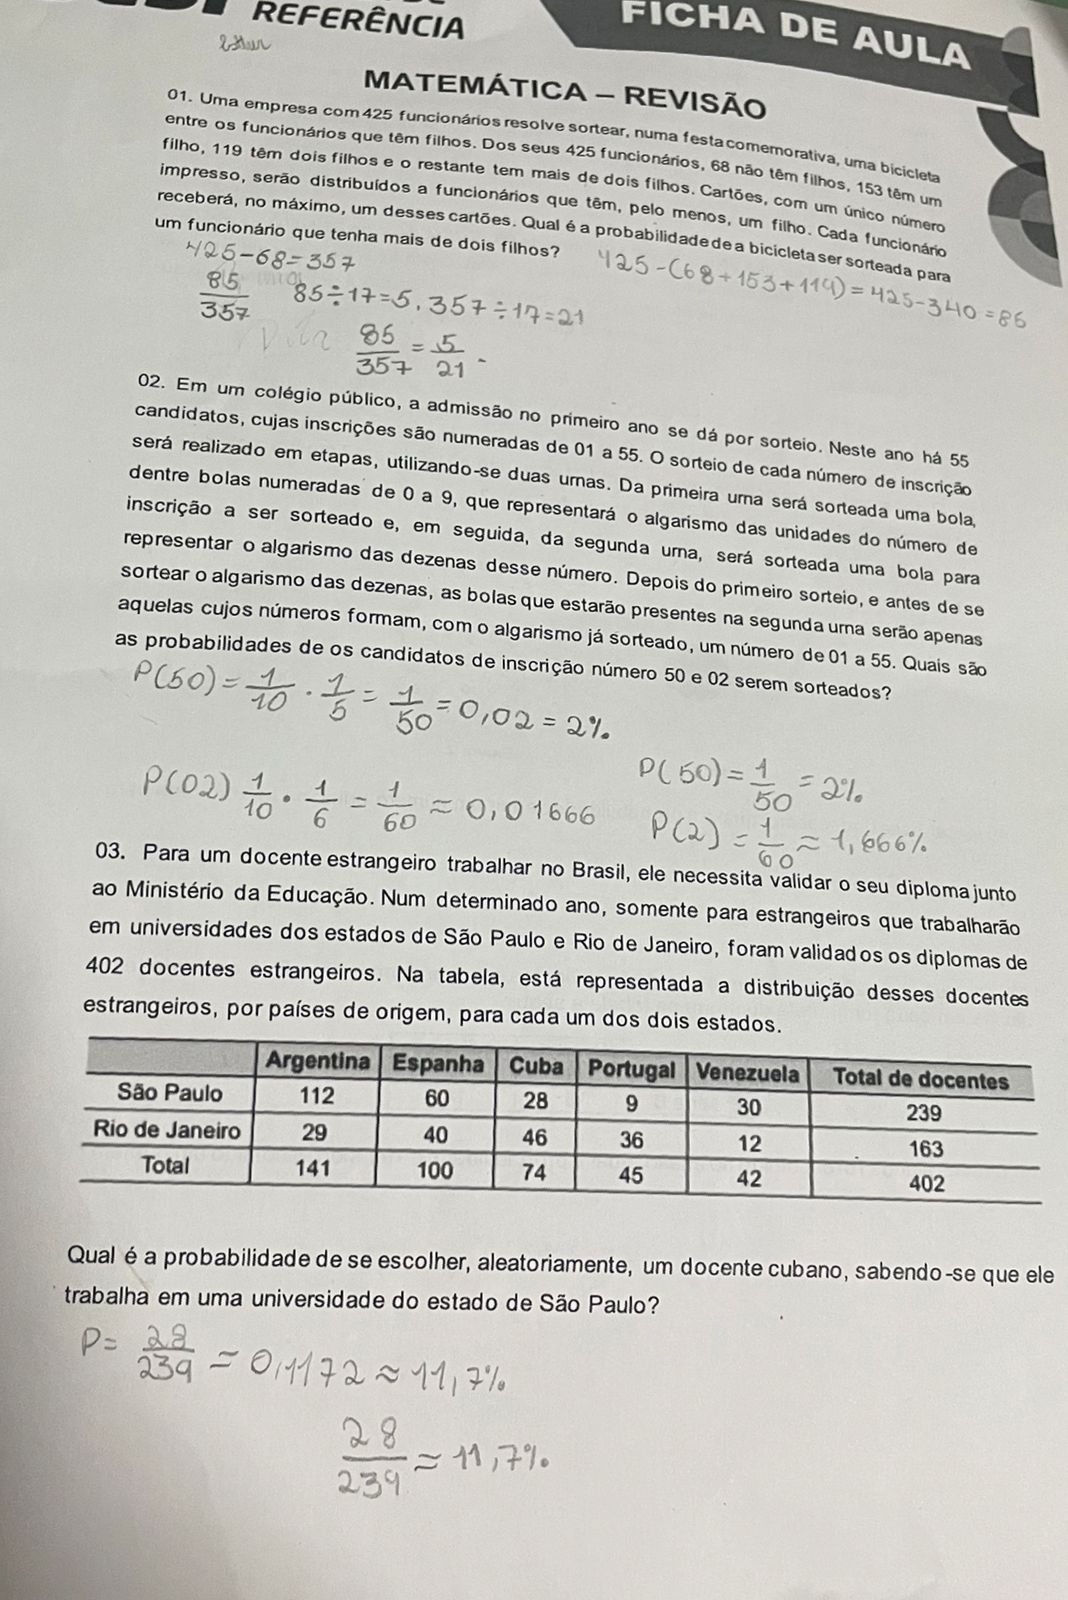 REFERÊNCIA
FICHA DE AULA
MATEMÁTICA – REVISÃO
01. Uma empresa com 425 funcionários resolve sortear, numa festa comemorativa, uma bicicleta
entre os funcionários que têm filhos. Dos seus 425 funcionários, 68 não têm filhos, 153 têm um
filho, 119 têm dois filhos e o restante tem mais de dois filhos. Cartões, com um único número
impresso, serão distribuídos a funcionários que têm, pelo menos, um filho. Cada funcionário
receberá, no máximo, um desses cartões. Qual é a probabilidade de a bicicleta ser sorteada para
um funcionário que tenha mais de dois filhos?
425-68=357
425-(68+153+119)=425-340=85
85/357
85÷17=5, 357÷17=21
85/357 = 5/21
02. Em um colégio público, a admissão no primeiro ano se dá por sorteio. Neste ano há 55
candidatos, cujas inscrições são numeradas de 01 a 55. O sorteio de cada número de inscrição
será realizado em etapas, utilizando-se duas urnas. Da primeira urna será sorteada uma bola,
dentre bolas numeradas de 0 a 9, que representará o algarismo das unidades do número de
inscrição a ser sorteado e, em seguida, da segunda urna, será sorteada uma bola para
representar o algarismo das dezenas desse número. Depois do primeiro sorteio, e antes de se
sortear o algarismo das dezenas, as bolas que estarão presentes na segunda urna serão apenas
aquelas cujos números formam, com o algarismo já sorteado, um número de 01 a 55. Quais são
as probabilidades de os candidatos de inscrição número 50 e 02 serem sorteados?
P(50) = 1/10 · 1/5 = 1/50 = 0,02 = 2%
P(50) = 1/50 = 2%
P(02) 1/10 · 1/6 = 1/60 ≈ 0,01666
P(2) = 1/60 ≈ 1,666%
03. Para um docente estrangeiro trabalhar no Brasil, ele necessita validar o seu diploma junto
ao Ministério da Educação. Num determinado ano, somente para estrangeiros que trabalharão
em universidades dos estados de São Paulo e Rio de Janeiro, foram validados os diplomas de
402 docentes estrangeiros. Na tabela, está representada a distribuição desses docentes
estrangeiros, por países de origem, para cada um dos dois estados.
Argentina Espanha Cuba Portugal Venezuela Total de docentes
São Paulo 112 60 28 9 30 239
Rio de Janeiro 29 40 46 36 12 163
Total 141 100 74 45 42 402
Qual é a probabilidade de se escolher, aleatoriamente, um docente cubano, sabendo-se que ele
trabalha em uma universidade do estado de São Paulo?
P= 28/239 = 0,1172 ≈ 11,7%
28/239 ≈ 11,7%